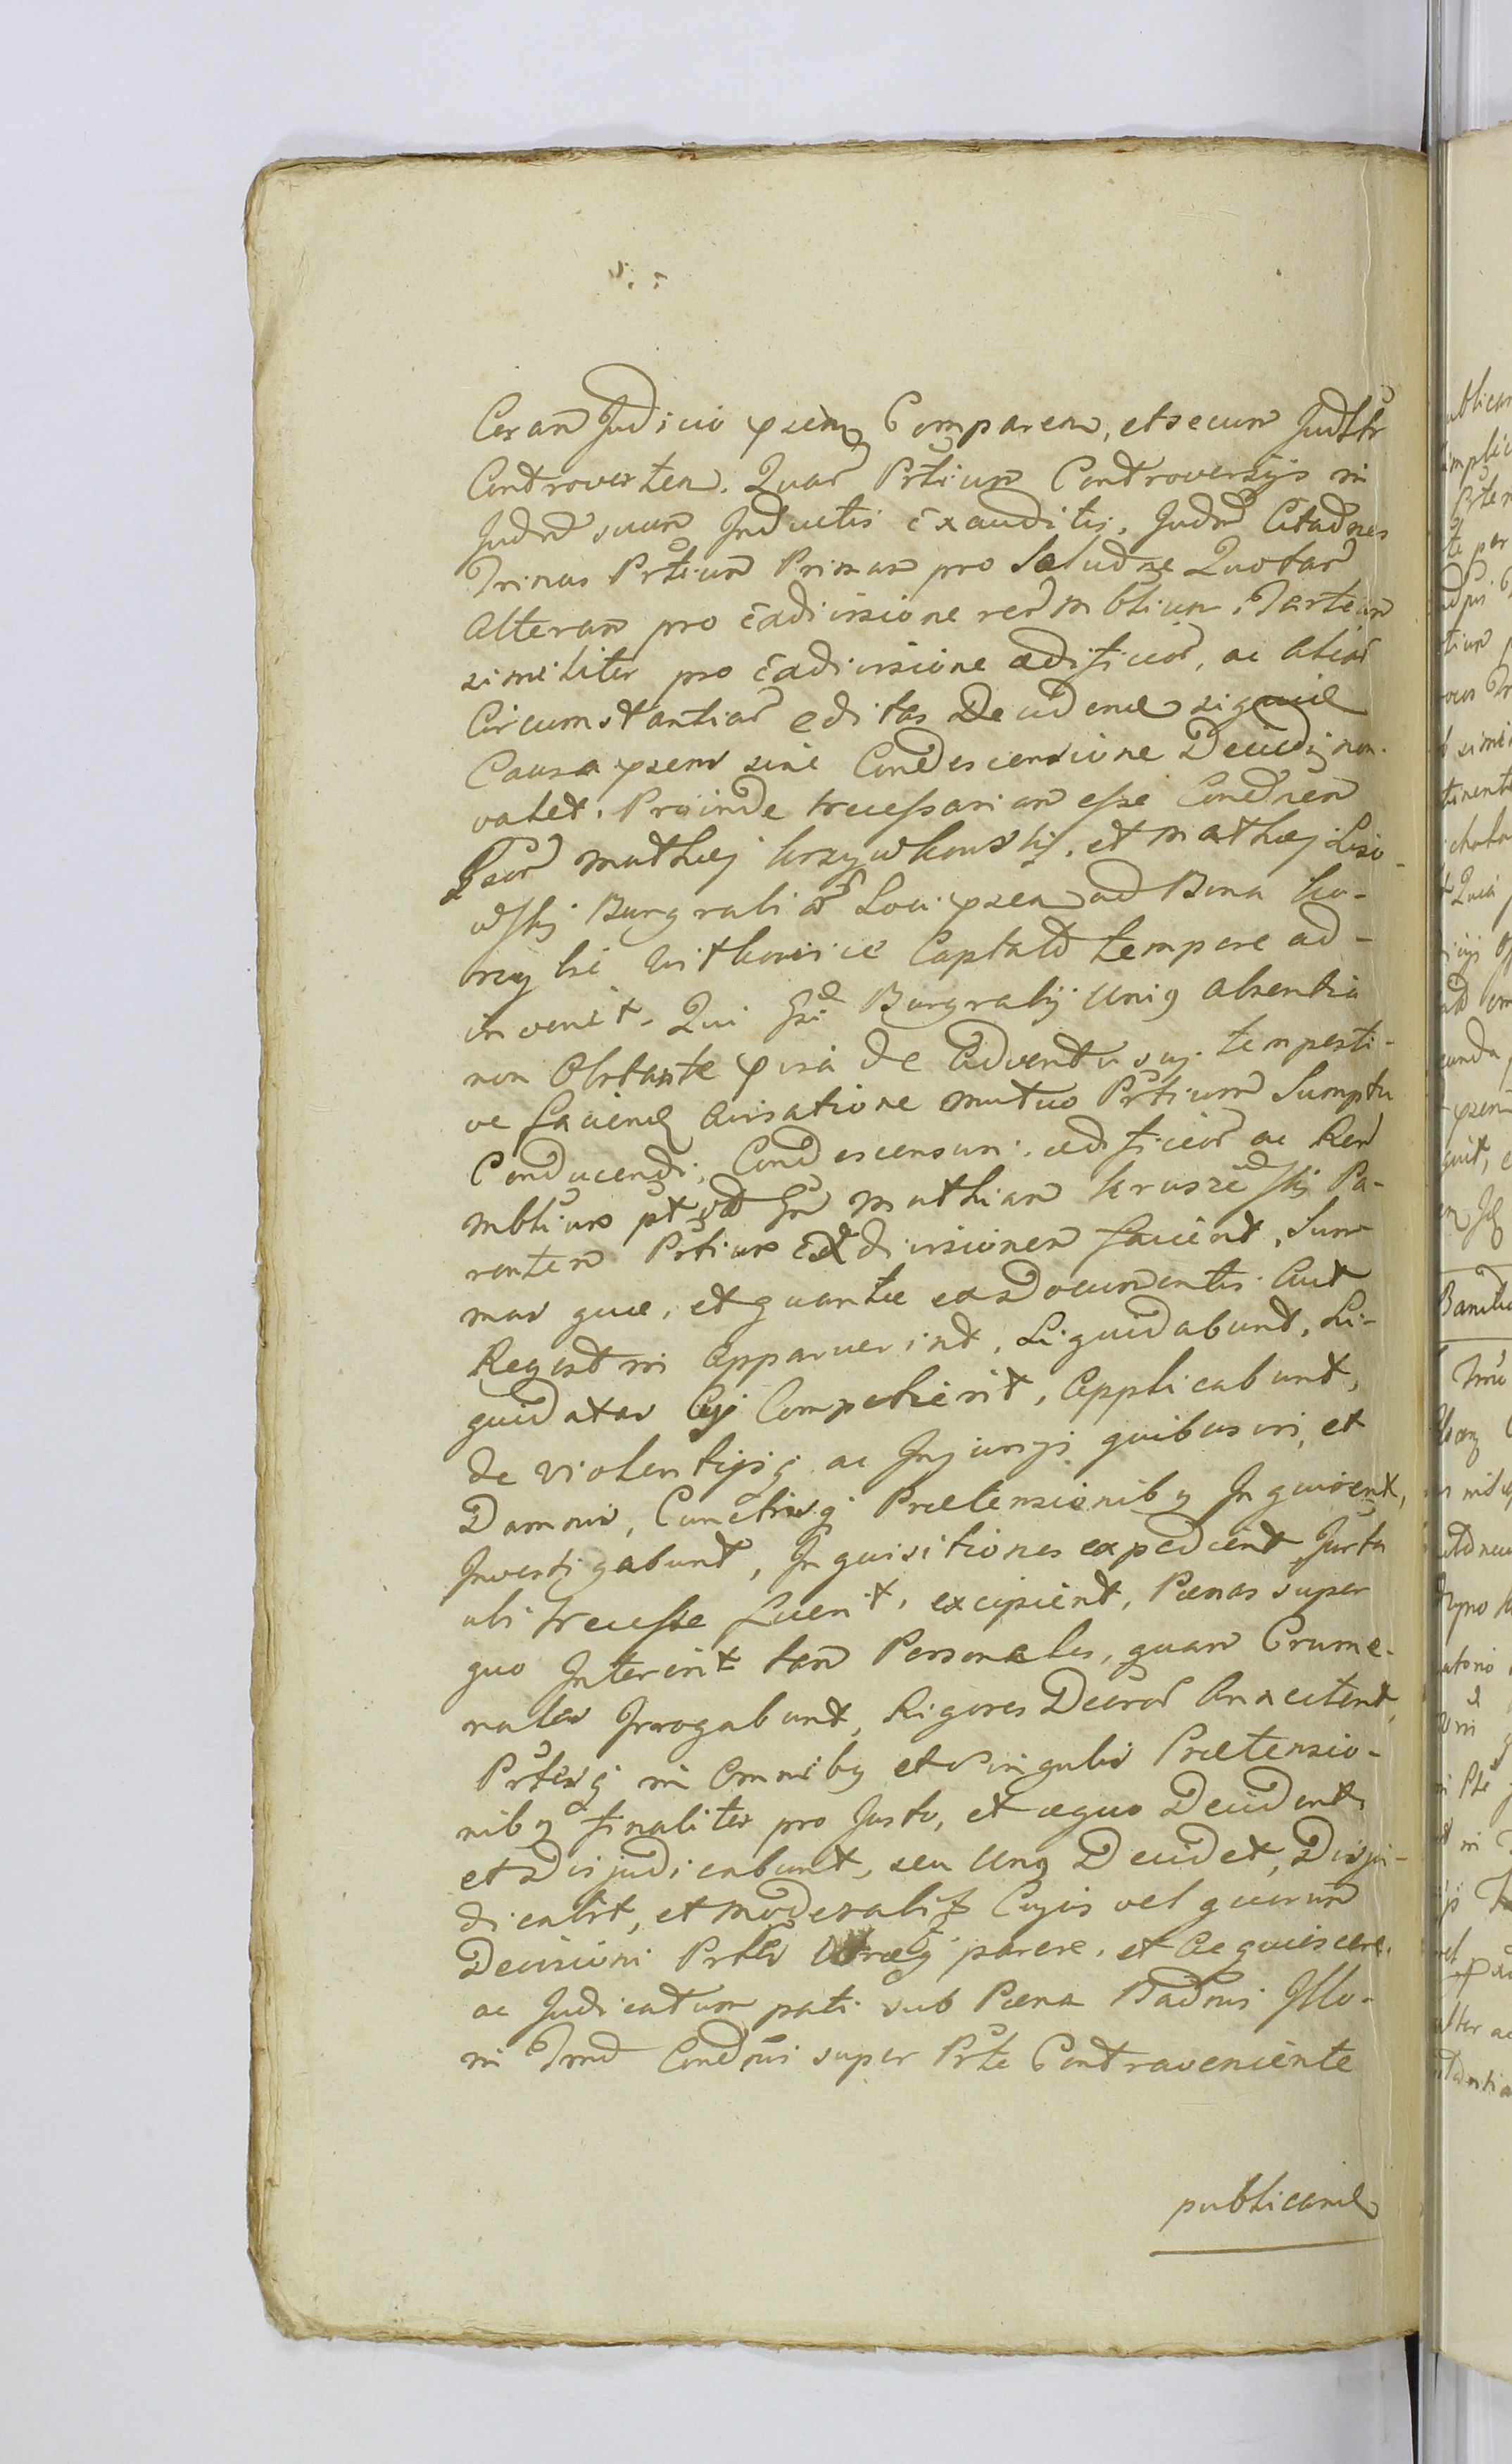 Coram Judicio psenti Comparen, et secum Judltr
Controverten. Quar Prtium Controversijs in
Judm suum Inductis Exauditis, Judm Citaones
Trinas Prtium Primam pro Solutne Quotar
Alteram pro Exdivisione rerm mblium, Tertiam
similiter pro Exdivisione ædificior, ac Aliar
Circumstantiar editas Decidend
Causa psens sine Condescensione Decidi non
valet. Proinde necessariam esse Condnem
Gsor Mathæj Krzywkowskj, et Mathæj Lisio-
wskj Burgrabior Loci psen ad Bona Ko-
Witkowice Captato tempore ad-
invenit. Qui Gsi Burgrabij Uniq absentia
non Obstante pvia de Adventu suj tempesti-
ve faciend Avisatione mutuo Prtium Sumptu
Conducendi, Condescensuri, ædificior ac Rerm
mblium pt Gm Mathiam Pa-
rentem Prtium Exdivisionem facient, Sum-
mas quæ, et quantæ ex Documentis Aut
Regestris Apparuerint, Liquidabunt, Li-
quidatas Cuj Competierit, Applicabunt,
de violentijsq ac Injurijs quibusvis, et
Damnis, Cunctisq Prætensionibq Inquirent,
Investigabunt, Inquisitiones expedient Jurta
ubi necesse fuerit, excipient, Pænas super
quo Intererit tam Personales, quam Crume-
nales Irrogabunt, Rigores Decror Annectent,
Prtesq in Omnibq et Singulis Prætensio-
nibq finaliter pro Justo, et æquo Decident,
et Disjudicabunt, seu Unq Decidet, Disju-
dicabit, et moderabit Cujus vel quorum
Decisioni Prtes Utræq parere, et Acquiescere,
ac Judicatum pati sub Pæna Banoni Illo-
in Trno Condnis super Prte Contraveniente
publicand